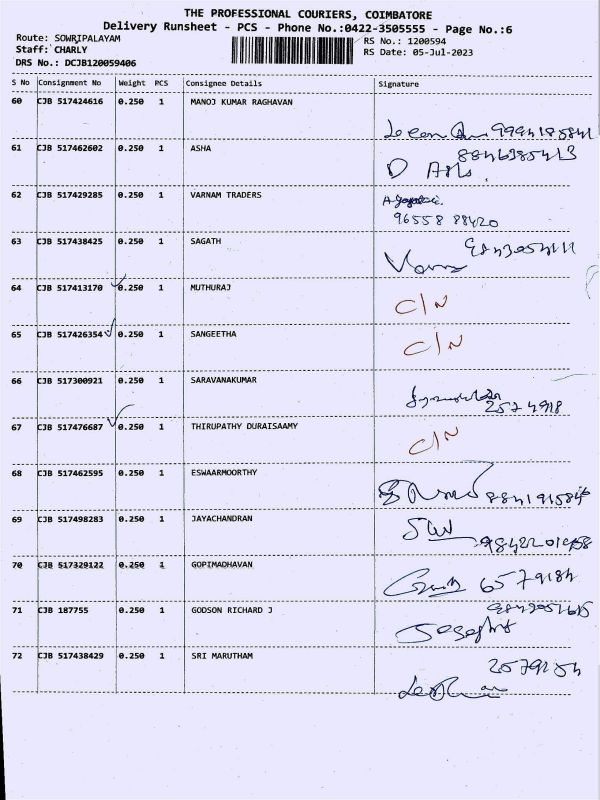 THE PROFESSIONAL COURIERS, COIMBATORE
Delivery Runsheet - PCS - Phone No.:0422-3505555 - Page No.:6
Route: SOWRIPALAYAM
Staff: CHARLY
DRS No.: DCJB120059406
RS No.: 1200594
RS Date: 05-Jul-2023
S No Consignment No Weight PCS Consignee Details Signature
60 CJB 517424616 0.250 1 MANOJ KUMAR RAGHAVAN
9994185841
61 CJB 517462602 0.250 1 ASHA
8846385413
62 CJB 517429285 0.250 1 VARNAM TRADERS
96558 88420
63 CJB 517438425 0.250 1 SAGATH
64 CJB 517413170 0.250 1 MUTHURAJ
C/N
65 CJB 517426354 0.250 1 SANGEETHA
C/N
66 CJB 517300921 0.250 1 SARAVANAKUMAR
2574918
67 CJB 517476687 0.250 1 THIRUPATHY DURAISAAMY
C/N
68 CJB 517462595 0.250 1 ESWAARMOORTHY
69 CJB 517498283 0.250 1 JAYACHANDRAN
70 CJB 517329122 0.250 1 GOPIMADHAVAN
6579184
71 CJB 187755 0.250 1 GODSON RICHARD J
72 CJB 517438429 0.250 1 SRI MARUTHAM
2579254